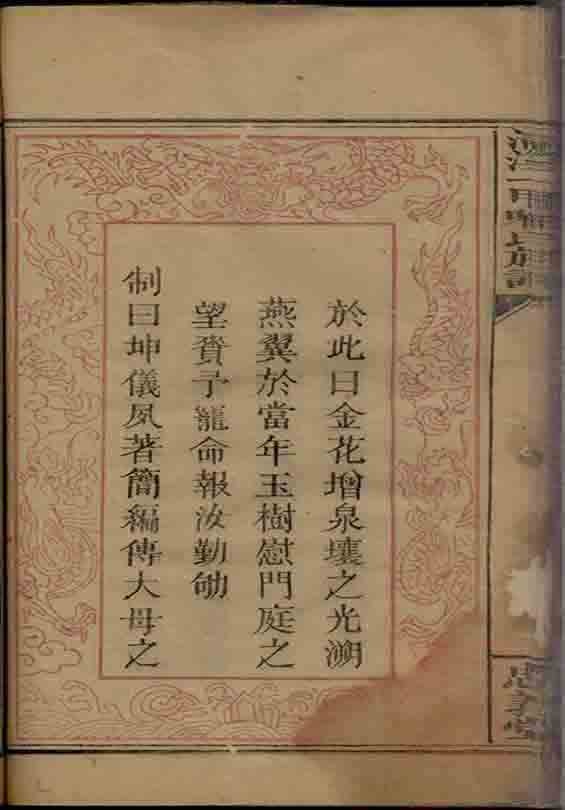 於此日金花增泉壤之光溯
燕翼於當年玉樹慰門庭之
望賚予寵命報汝勤劬
制曰坤儀夙著簡編傳大母之